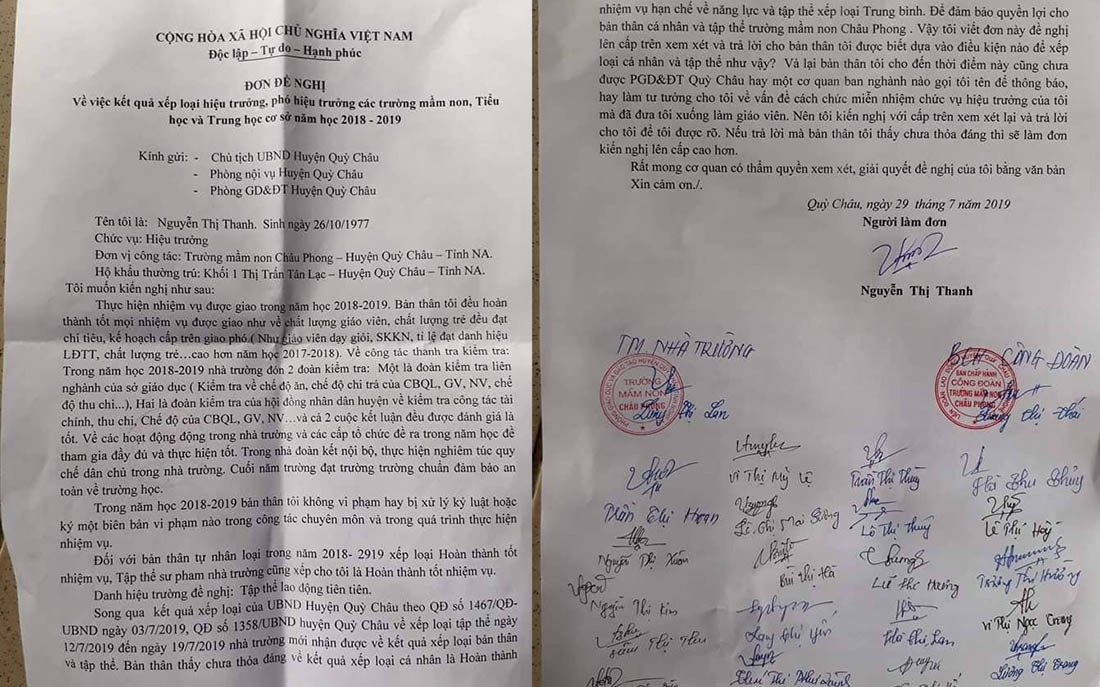 CỘNG HÒA XÃ HỘI CHỦ NGHĨA VIỆT NAM
Độc lập – Tự do – Hạnh phúc
ĐƠN ĐỀ NGHỊ
Về việc kết quả xếp loại hiệu trưởng, phó hiệu trưởng các trường mầm non, Tiểu
học và Trung học cơ sở năm học 2018 - 2019
Kính gửi: - Chủ tịch UBND Huyện Quỳ Châu
- Phòng nội vụ Huyện Quỳ Châu
- Phòng GD&ĐT Huyện Quỳ Châu
Tên tôi là: Nguyễn Thị Thanh. Sinh ngày 26/10/1977
Chức vụ: Hiệu trưởng
Đơn vị công tác: Trường mầm non Châu Phong – Huyện Quỳ Châu – Tỉnh NA.
Hộ khẩu thường trú: Khối 1 Thị Trấn Tân Lạc – Huyện Quỳ Châu – Tỉnh NA.
Tôi muốn kiến nghị như sau:
Thực hiện nhiệm vụ được giao trong năm học 2018-2019. Bản thân tôi đều hoàn
thành tốt mọi nhiệm vụ được giao như về chất lượng giáo viên, chất lượng trẻ đều đạt
chỉ tiêu, kế hoạch cấp trên giao phó.( Như giáo viên dạy giỏi, SKKN, tỉ lệ đạt danh hiệu
LĐTT, chất lượng trẻ…cao hơn năm học 2017-2018). Về công tác thanh tra kiểm tra:
Trong năm học 2018-2019 nhà trường đón 2 đoàn kiểm tra: Một là đoàn kiểm tra liên
nghành của sở giáo dục ( Kiểm tra về chế độ ăn, chế độ chi trả của CBQL, GV, NV, chế
độ thu chi...), Hai là đoàn kiểm tra của hội đồng nhân dân huyện về kiểm tra công tác tài
chính, thu chi, Chế độ của CBQL, GV, NV…và cả 2 cuộc kết luận đều được đánh giá là
tốt. Về các hoạt động động trong nhà trường và các cấp tổ chức đề ra trong năm học đề
tham gia đầy đủ và thực hiện tốt. Trong nhà đoàn kết nội bộ, thực hiện nghiêm túc quy
chế dân chủ trong nhà trường. Cuối năm trường đạt trường trường chuẩn đảm bảo an
toàn về trường học.
Trong năm học 2018-2019 bản thân tôi không vi phạm hay bị xử lý kỷ luật hoặc
ký một biên bản vi phạm nào trong công tác chuyên môn và trong quá trình thực hiện
nhiệm vụ.
Đối với bản thân tự nhân loại trong năm 2018- 2919 xếp loại Hoàn thành tốt
nhiệm vụ, Tập thể sư phạm nhà trường cũng xếp cho tôi là Hoàn thành tốt nhiệm vụ.
Danh hiệu trường đề nghị: Tập thể lao động tiên tiên.
Song qua kết quả xếp loại của UBND Huyện Quỳ Châu theo QĐ số 1467/QĐ-
UBND ngày 03/7/2019, QĐ số 1358/UBND huyện Quỳ Châu về xếp loại tập thể ngày
12/7/2019 đến ngày 19/7/2019 nhà trường mới nhận được về kết quả xếp loại bản thân
và tập thể. Bản thân thấy chưa thỏa đáng về kết quả xếp loại cá nhân là Hoàn thành
nhiệm vụ hạn chế về năng lực và tập thể xếp loại Trung bình. Để đảm bảo quyền lợi cho
bản thân cá nhân và tập thể trường mầm non Châu Phong . Vậy tôi viết đơn này đề nghị
lên cấp trên xem xét và trả lời cho bản thân tôi được biết dựa vào điều kiện nào để xếp
loại cá nhân và tập thể như vậy? Vả lại bản thân tôi cho đến thời điểm này cũng chưa
được PGD&ĐT Quỳ Châu hay một cơ quan ban nghành nào gọi tôi tên để thông báo,
hay làm tư tưởng cho tôi về vấn đề cách chức miễn nhiệm chức vụ hiệu trưởng của tôi
mà đã đưa tôi xuống làm giáo viên. Nên tôi kiến nghị với cấp trên xem xét lại và trả lời
cho tôi để tôi được rõ. Nếu trả lời mà bản thân tôi thấy chưa thỏa đáng thì sẽ làm đơn
kiến nghị lên cấp cao hơn.
Rất mong cơ quan có thẩm quyền xem xét, giải quyết đề nghị của tôi bằng văn bản
Xin cảm ơn./.
Quỳ Châu, ngày 29 tháng 7 năm 2019
Người làm đơn
Nguyễn Thị Thanh
TM NHÀ TRƯỜNG
BCH CÔNG ĐOÀN
TRƯỜNG
MẦM NON
CHÂU PHONG
BAN CHẤP HÀNH
CÔNG ĐOÀN
TRƯỜNG MẦM NON
CHÂU PHONG
Thị Lan
Thị Thái
Vi Thị Mỹ Lệ
Trần Thị Thùy
Hà Thu Thủy
Trần Thị Hoan
Lê Thị Mai Sương
Lô Thị Thùy
Lê Thị Hoài
Nguyễn Thị Xuân
Bùi Thị Hà
Lê Thị Hương
Trương Thị Hường
Nguyễn Thị Kim
Vi Thị Ngọc
Thị Thu
Lang Thị Yên
Hà Thị Lan
Lương Thị Trang